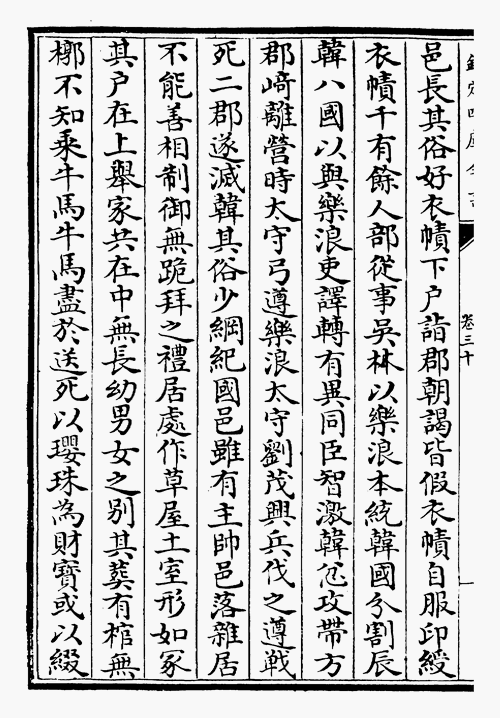 邑長其俗好衣幘下户詣郡朝謁皆假衣幘自服印綬
衣幘千有餘人部從事吳林以樂浪本統韓國分割辰
韓八國以與樂浪吏譯轉有異同臣智激韓忿攻帶方
郡﨑離營時太守弓遵樂浪太守劉茂興兵伐之遵戰
死二郡遂滅韓其俗少綱紀國邑雖有主帥邑落雜居
不能善相制御無跪拜之禮居處作草屋土室形如冢
其户在上舉家共在中無長幼男女之别其葬有棺無
槨不知乘牛馬牛馬盡於送死以瓔珠為財寳或以綴
卷三十